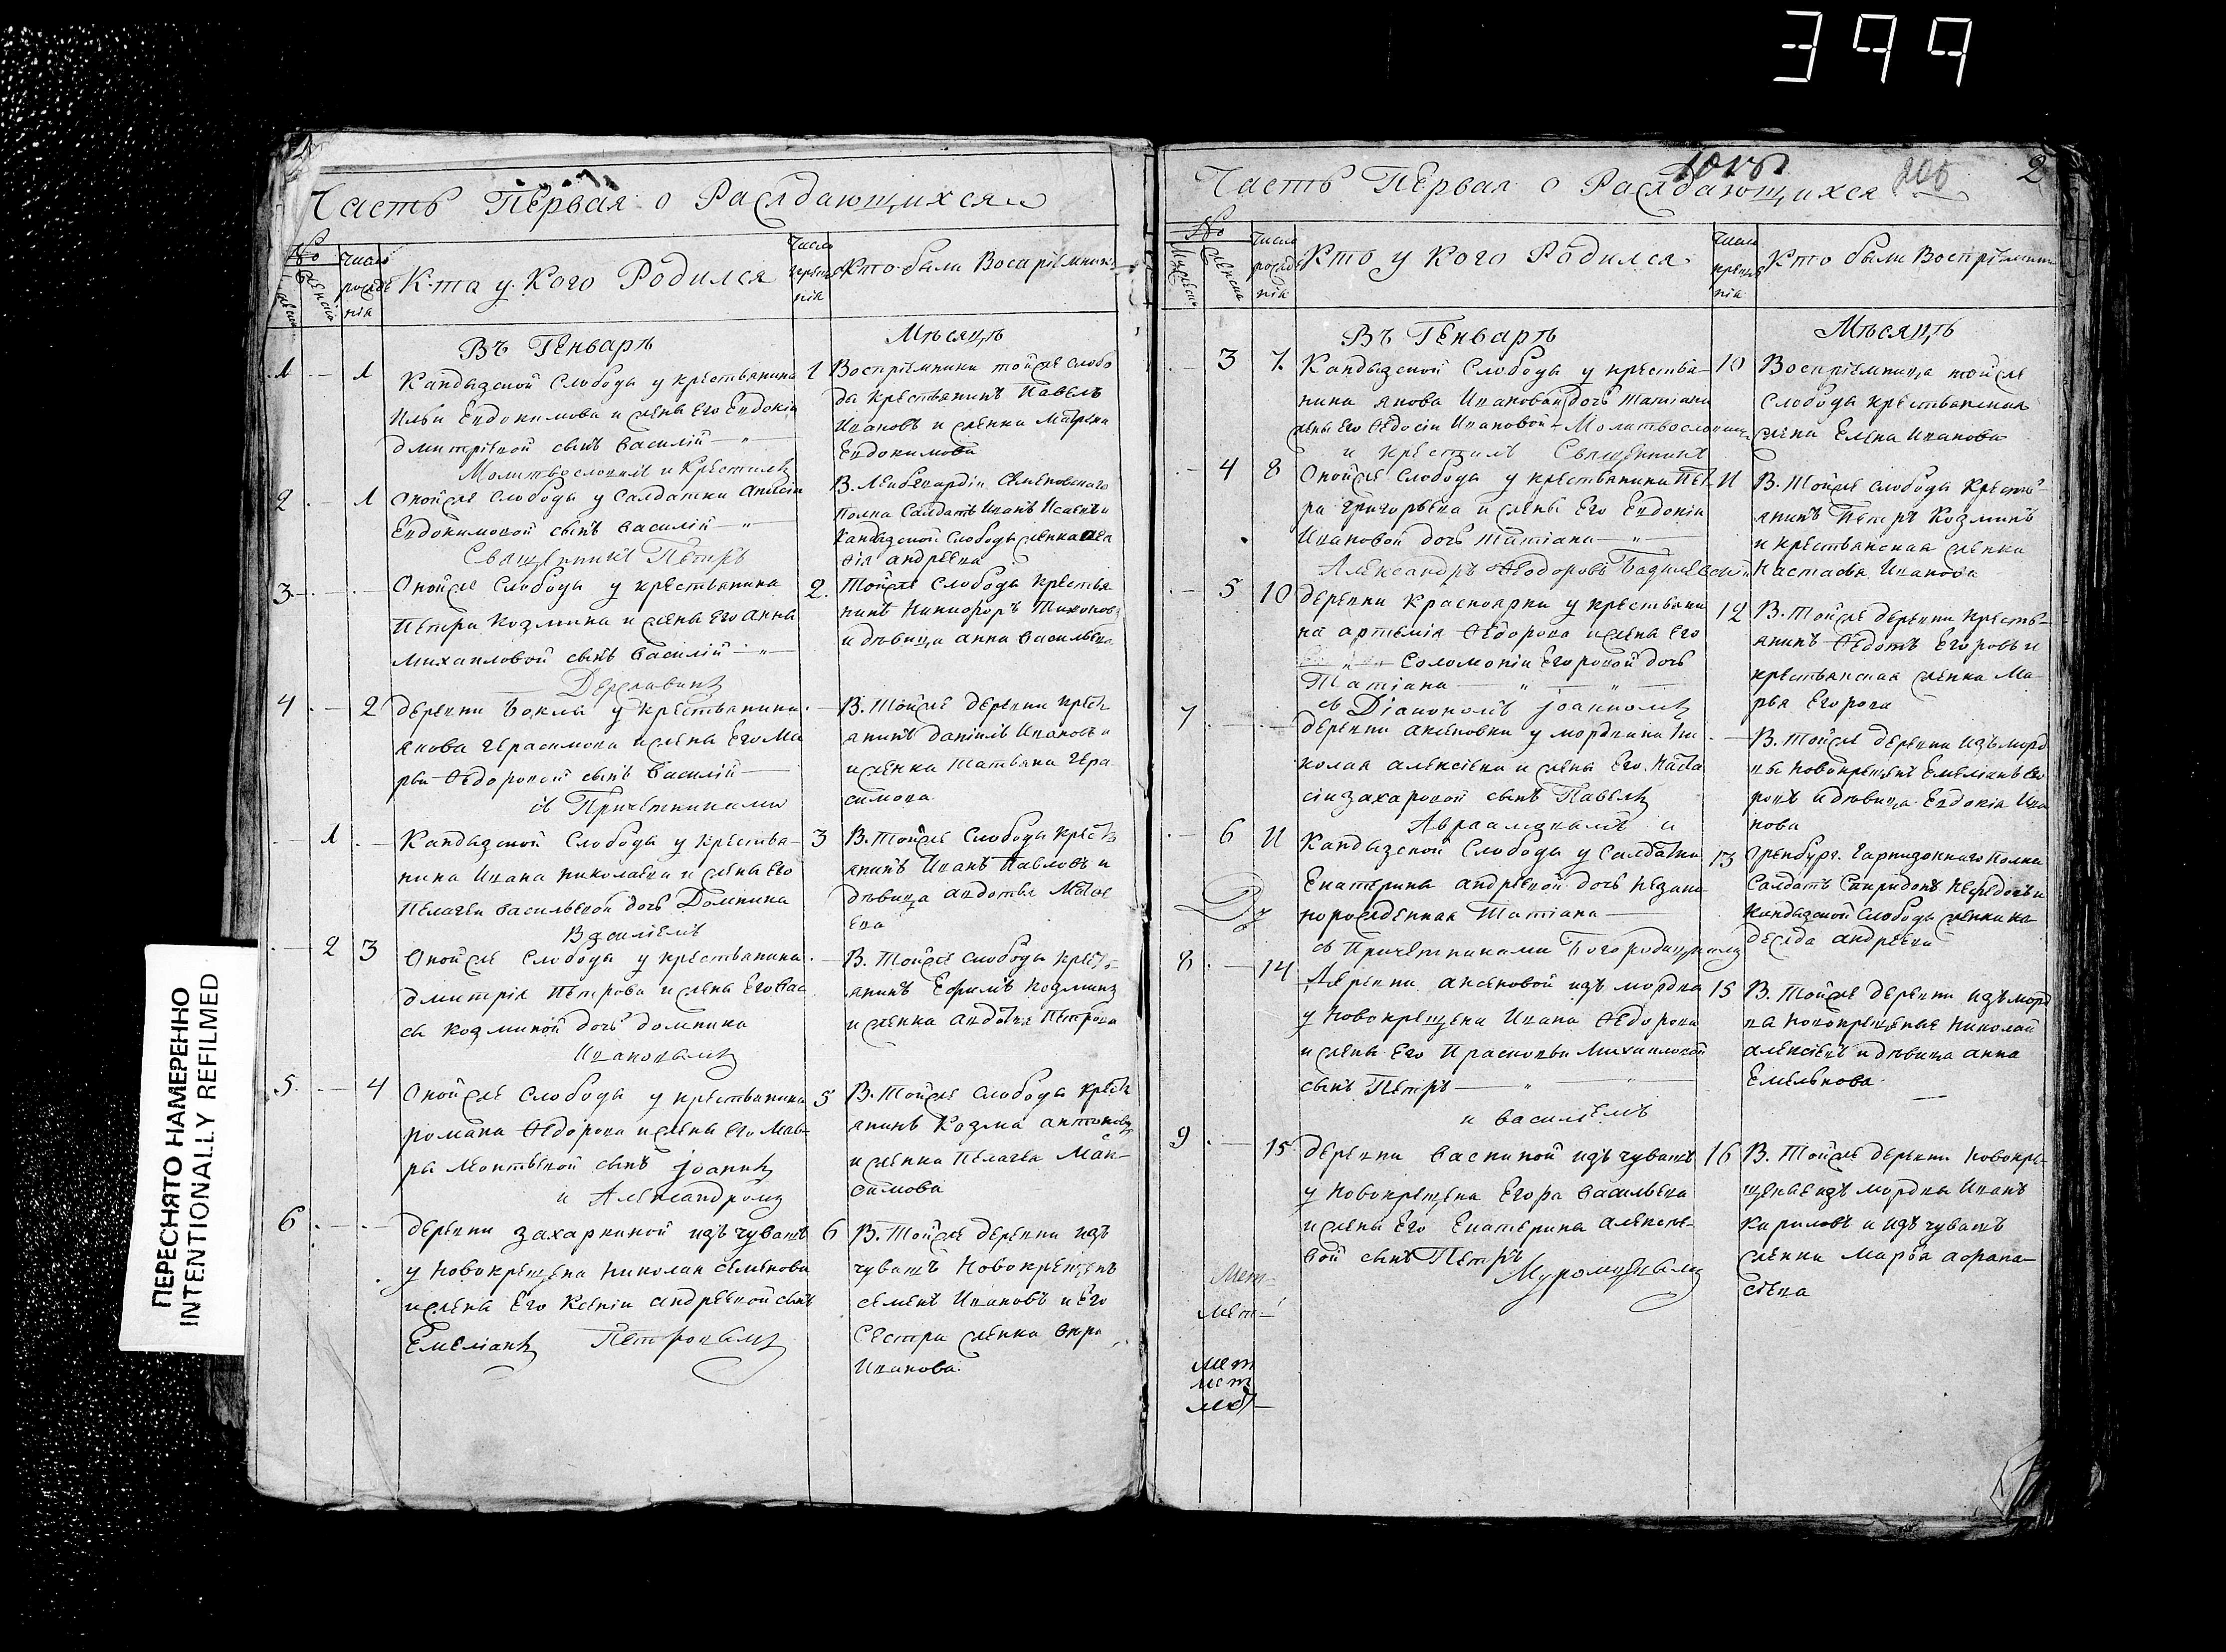 399
Часть Первая о Раждающихся
№
Число рождѣнія
Кто у Кого Родился
Число крещѣнія
Кто были Воспріѣмники
Въ Генварѣ
Мѣсяцѣ
1 — 1
Кандызской Слободы у крестьянина
Ильи Евдокимова и жены Его Евдокіи
Дмитріевой сынъ Василій
Молитвословилъ и Крестилъ
1
Воспріемники тойже слобо
ды Крестьянинъ Павелъ
Ивановъ и женка Матрена
Евдокимова
2 — 1
Оной же Слободы у Салдатки Анисіи
Евдокимовой сынъ Василій
Священникъ Петръ
В. Лейбгвардіи Семеновскаго
полка Салдатъ Иванъ Исаевъ и
Кандызской Слободы женка
андреева
3
Оной же Слободы у крестьянина
Петра Козмина и жены Его Анны
Михаиловой сынъ Василій
Державинъ
2
Тойже Слободы Крестья
нинъ Никифоръ Тихоновъ
и дѣвица анна Васильева
4 — 2
деревни Боклы у Крестьянина
якова Герасимова и жены Его Ма
рьи Ѳедоровой сынъ Василій
съ Причетниками
В. Тойже деревни крест
янинъ Даніилъ Ивановъ
и женка Татьяна Гера
симова
1
Кандызской Слободы у Крестья
нина Ивана Николаева и жены Его
Пелагеи Васильевой дочь Домника
Василіемъ
3
В. Тойже Слободы крест
янинъ Иванъ Павловъ и
дѣвица авдотья Матве
ева
2 3
Оной же Слободы у крестьянина
дмитрія Петрова и жены Его Вас
сы Козминой дочь домника
Ивановымъ
В. Тойже слободы крест
янинъ Ефимъ Козминъ
и женка авдотья Петрова
5 — 4
Оной же Слободы у крестьянина
романа Ѳедорова и жены Его Мав
ры Леонтьевой сынъ Іоаннъ
и Александромъ
5
В. Тойже Слободы крест
янинъ Козма антоновъ
и женка Пелагея Мак
симова
6
деревни захаркиной изъ чувашъ
у новокрещена Николая Семенова
и жены Его Ксеніи андреевой сынъ
Емеліанъ Петровымъ
6
В. Тойже деревни изъ
чувашъ Новокрещенъ
Семенъ Ивановъ и Его
Сестра женка вѣра
Иванова.
Часть Первая о Раждающихся
2
№
Число рождѣнія
Кто у Кого Родился
Число крещѣнія
Кто были Воспріѣмники
Въ Генварѣ
Мѣсяцѣ
3 7
Кандызской Слободы у крестья
нина якова Иванова дочь Татіана
жены Его Ѳедосіи Ивановой Молитвословилъ
и крестилъ Священникъ
10
Воспріемница тойже
Слободы крестьянская
женка Елена Иванова
4 8
Оной же Слободы у крестьянина Пет
ра Григорьева и жены Его Евдокіи
Ивановой дочь Татіана
Александръ Ѳеодоровъ
11
В. Тойже слободы Кресть
янинъ Петръ Козминъ
и крестьянская женка
Настасья Иванова
5 10
деревни Красноярки у крестьяни
на артемія Ѳедорова и жены Его
Соломоніи Егоровой дочь
Татіана
съ Діакономъ Іоанномъ
12
В. Тойже деревни Кресть
янинъ Ѳедотъ Егоровъ и
крестьянская женка Ма
рья Егорова
7
деревни аксеновки у мордвина Ни
колая алексіева и жены Его Наста
сіи захаровой сынъ Павелъ
Авраамовымъ и
В. Тойже деревни изъ морд
вы новокрещенъ Емеліанъ
и дѣвица Евдокія Ива
нова
6 11
Кандызской Слободы у Салдатки
Екатерины андреевой дочь незакон
норожденная Татіана
съ Причетниками Богородицкимъ
13
Оренбург. Гарнизоннаго полка
Салдатъ Спиридонъ и
Кандызской Слободы женка На
дежда андреева
8 — 14
Деревни аксеновой изъ мордвы
у новокрещена Ивана Ѳедорова
и жены Его Прасковьи Михаиловой
сынъ Петръ
и Василіемъ
15
В. Тойже деревни изъ морд
вы новокрещеные Николай
алексіевъ и дѣвица анна
Емельянова
9 — 15
деревни васкиной изъ чувашъ
у новокрещена Егора Васильева
и жены Его Екатерины алексее
вой сынъ Петръ
Муромцовымъ
16
В. Тойже деревни новокре
щеные изъ мордвы Иванъ
Кириловъ и изъ чувашъ
женка Марья афана
сіева
ПЕРЕСНЯТО НАМЕРЕННО
INTENTIONALLY REFILMED